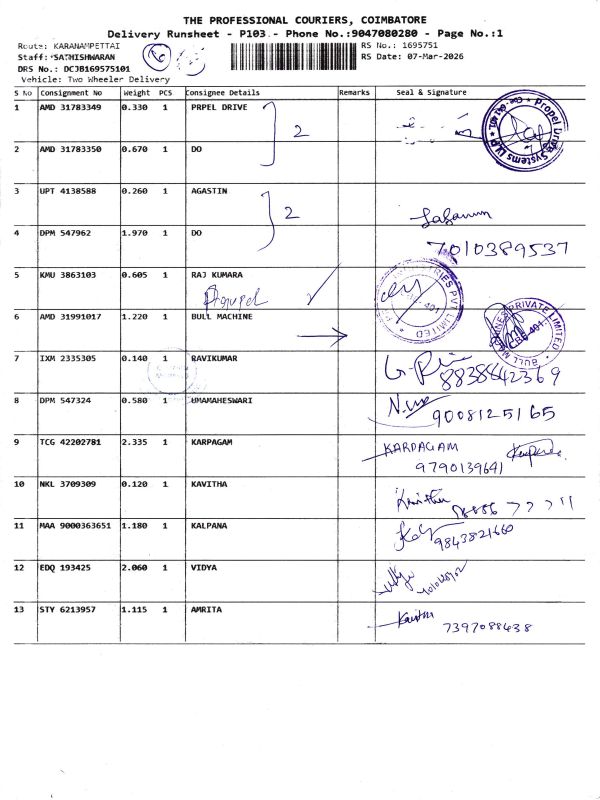 THE PROFESSIONAL COURIERS, COIMBATORE
Delivery Runsheet - P103 - Phone No.:9047080280 - Page No.:1
Route: KARANAMPETTAI
RS No.: 1695751
Staff: SATHISHWARAN
RS Date: 07-Mar-2026
DRS No.: DCJB169575101
Vehicle: Two Wheeler Delivery
S No Consignment No Weight PCS Consignee Details Remarks Seal & Signature
1 AMD 31783349 0.330 1 PRPEL DRIVE
2
2 AMD 31783350 0.670 1 DO
3 UPT 4138588 0.260 1 AGASTIN
2
4 DPM 547962 1.970 1 DO
7010389537
5 KMU 3863103 0.605 1 RAJ KUMARA
6 AMD 31991017 1.220 1 BULL MACHINE
BULL MACHINES PRIVATE LIMITED
7 IXM 2335305 0.140 1 RAVIKUMAR
8838842369
8 DPM 547324 0.580 1 UMAMAHESWARI
9008125165
9 TCG 42202781 2.335 1 KARPAGAM KARPAGAM
9790139641
10 NKL 3709309 0.120 1 KAVITHA Kavitha
11 MAA 9000363651 1.180 1 KALPANA
9843821660
12 EDQ 193425 2.060 1 VIDYA
13 STY 6213957 1.115 1 AMRITA
7397088438